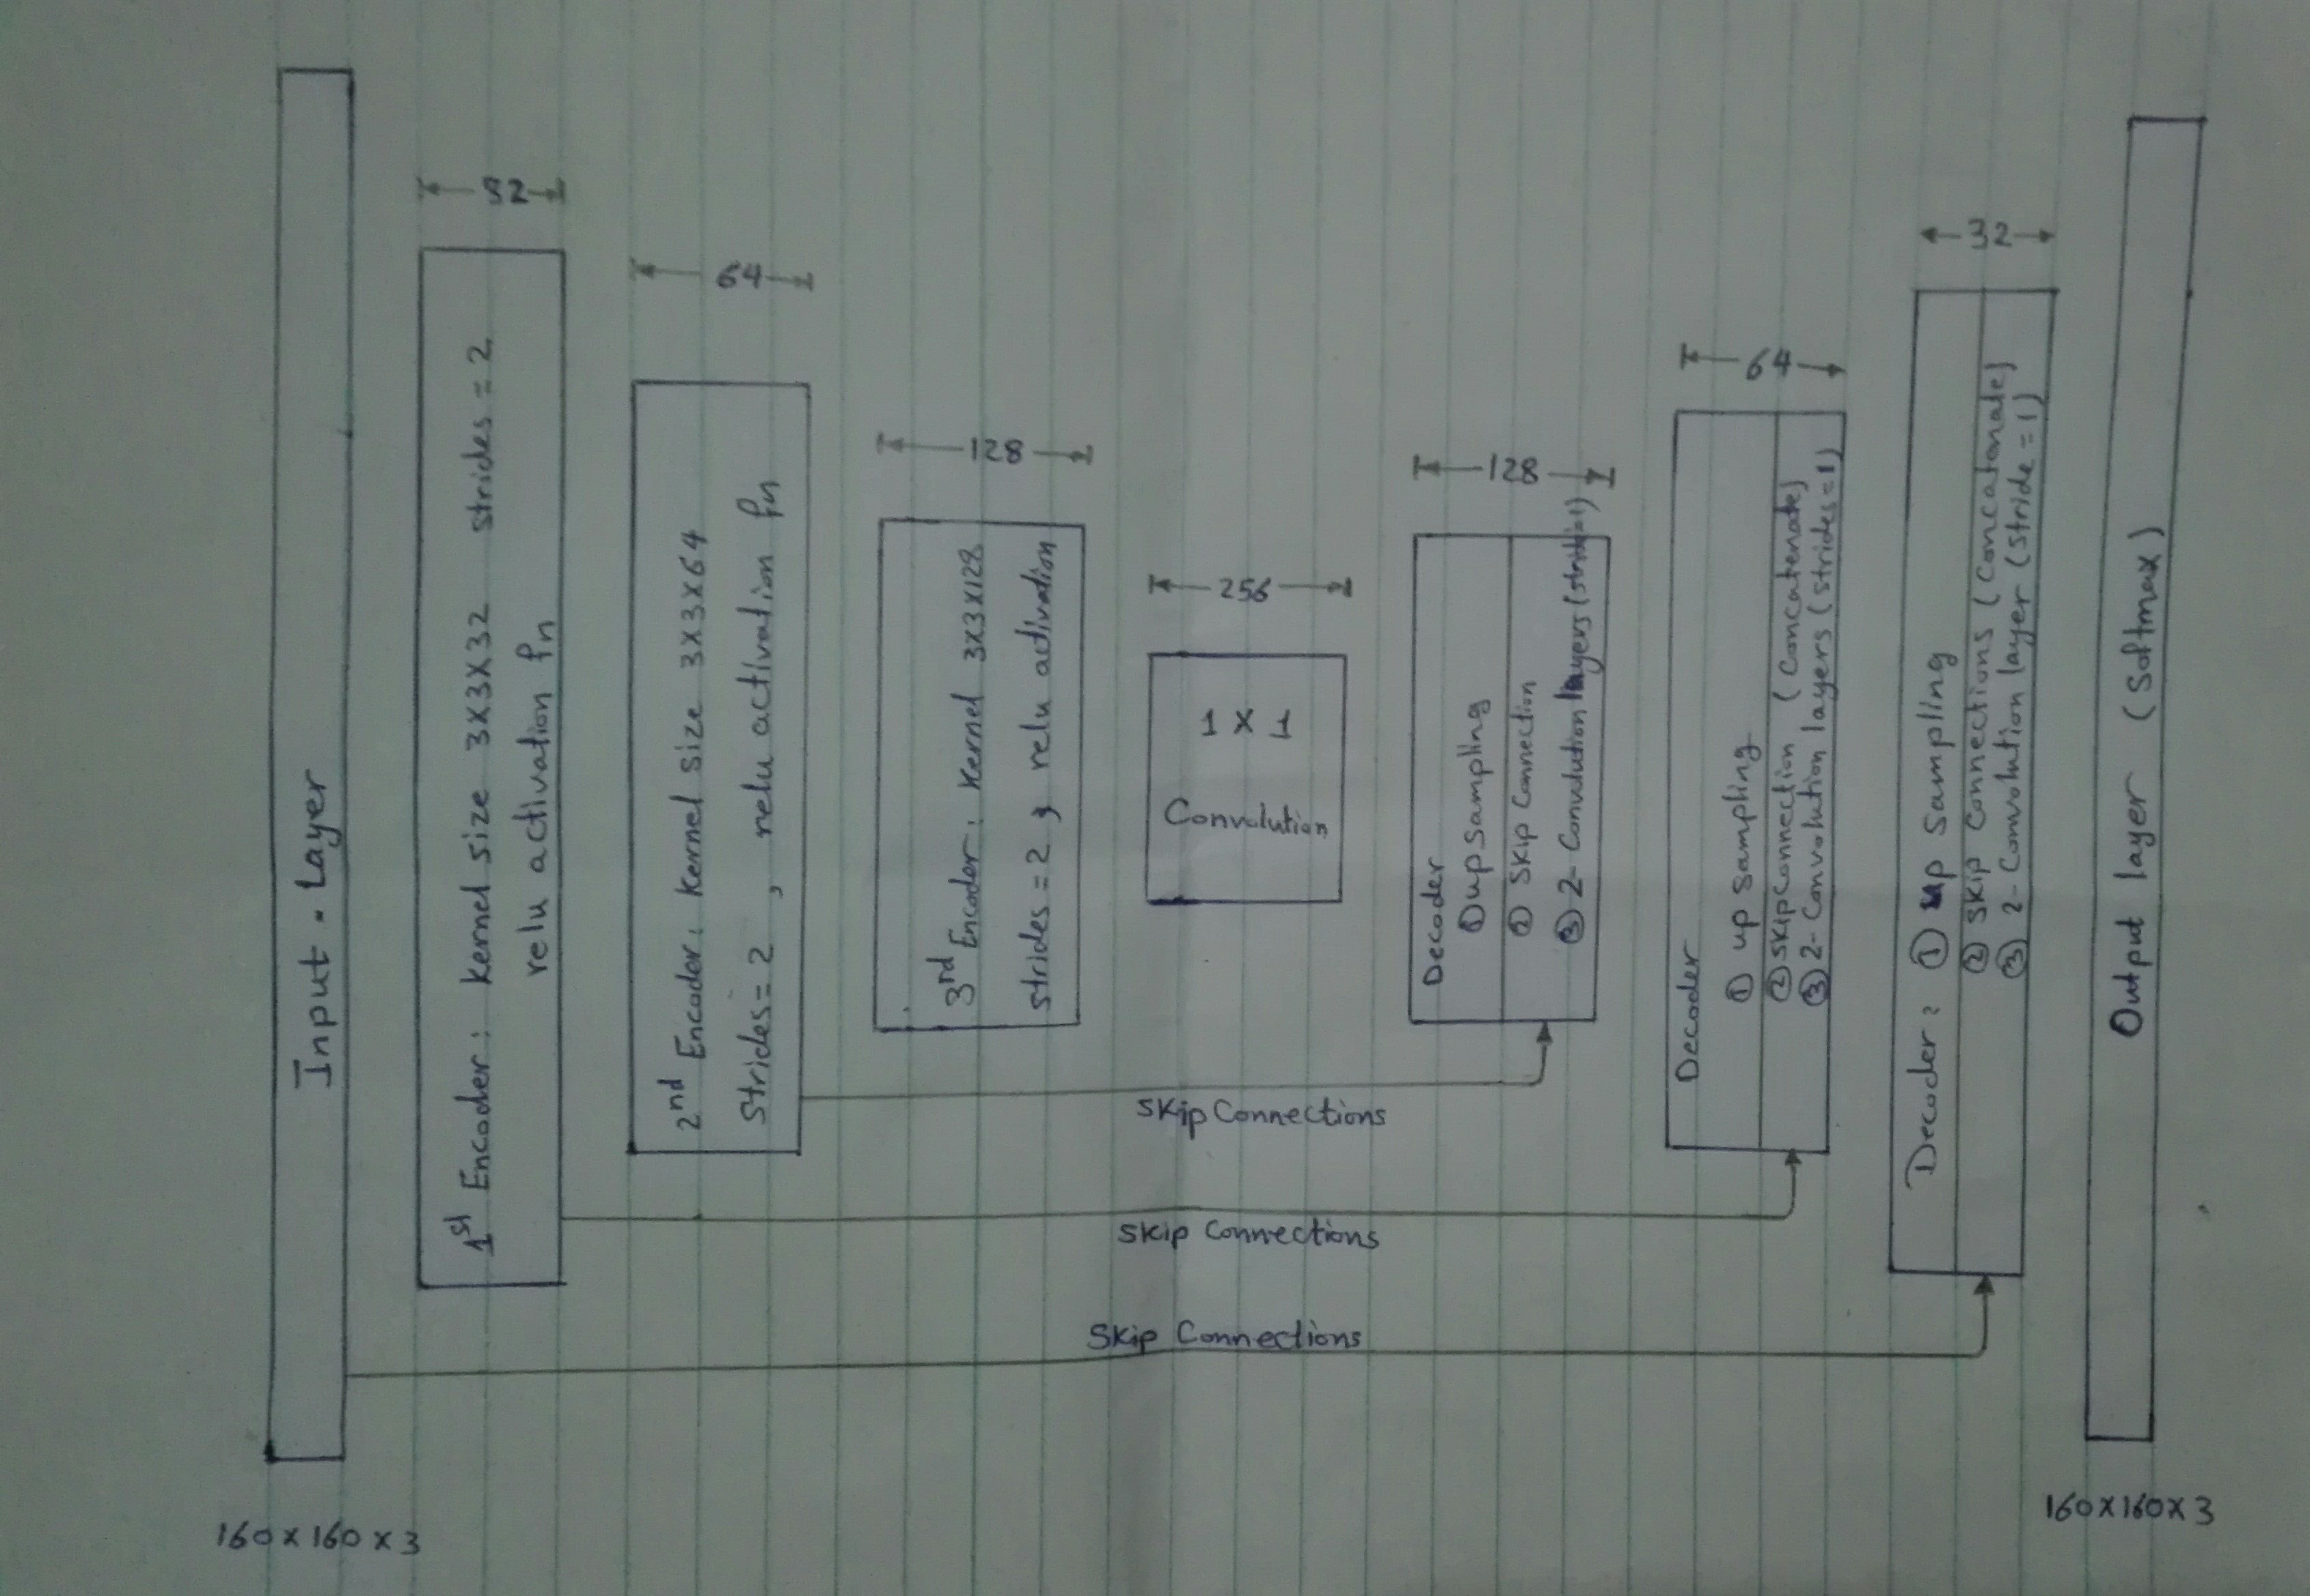 Input - Layer
160 x 160 x 3
32
1st Encoder: Kernel size 3x3x32 strides = 2
relu activation fn
64
2nd Encoder: Kernel size 3x3x64
Strides = 2 , relu activation fn
128
3rd Encoder: Kernel 3x3x128
strides = 2 , relu activation
256
1 x 1
Convolution
128
Decoder
① upsampling
② Skip Connection
③ 2- Convolution layers (stride=1)
64
Decoder
① up sampling
② skip connection (Concatenate)
③ 2- Convolution layers (strides=1)
32
Decoder: ① up sampling
② Skip Connections (Concatenate)
③ 2- Convolution layer (stride = 1)
Output layer (Softmax)
160x160x3
Skip Connections
Skip Connections
Skip Connections